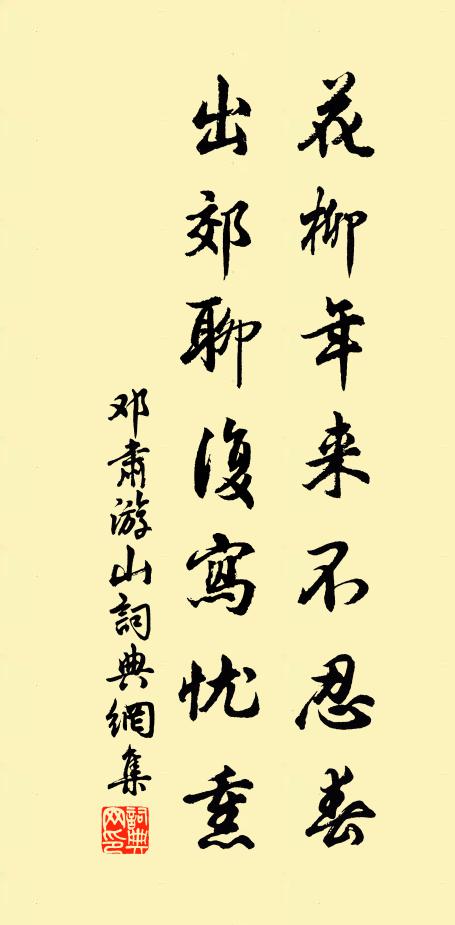 花柳年来不忍春
出郊聊復寫忧熏
邓肅游山詞典網集
詞典
网印